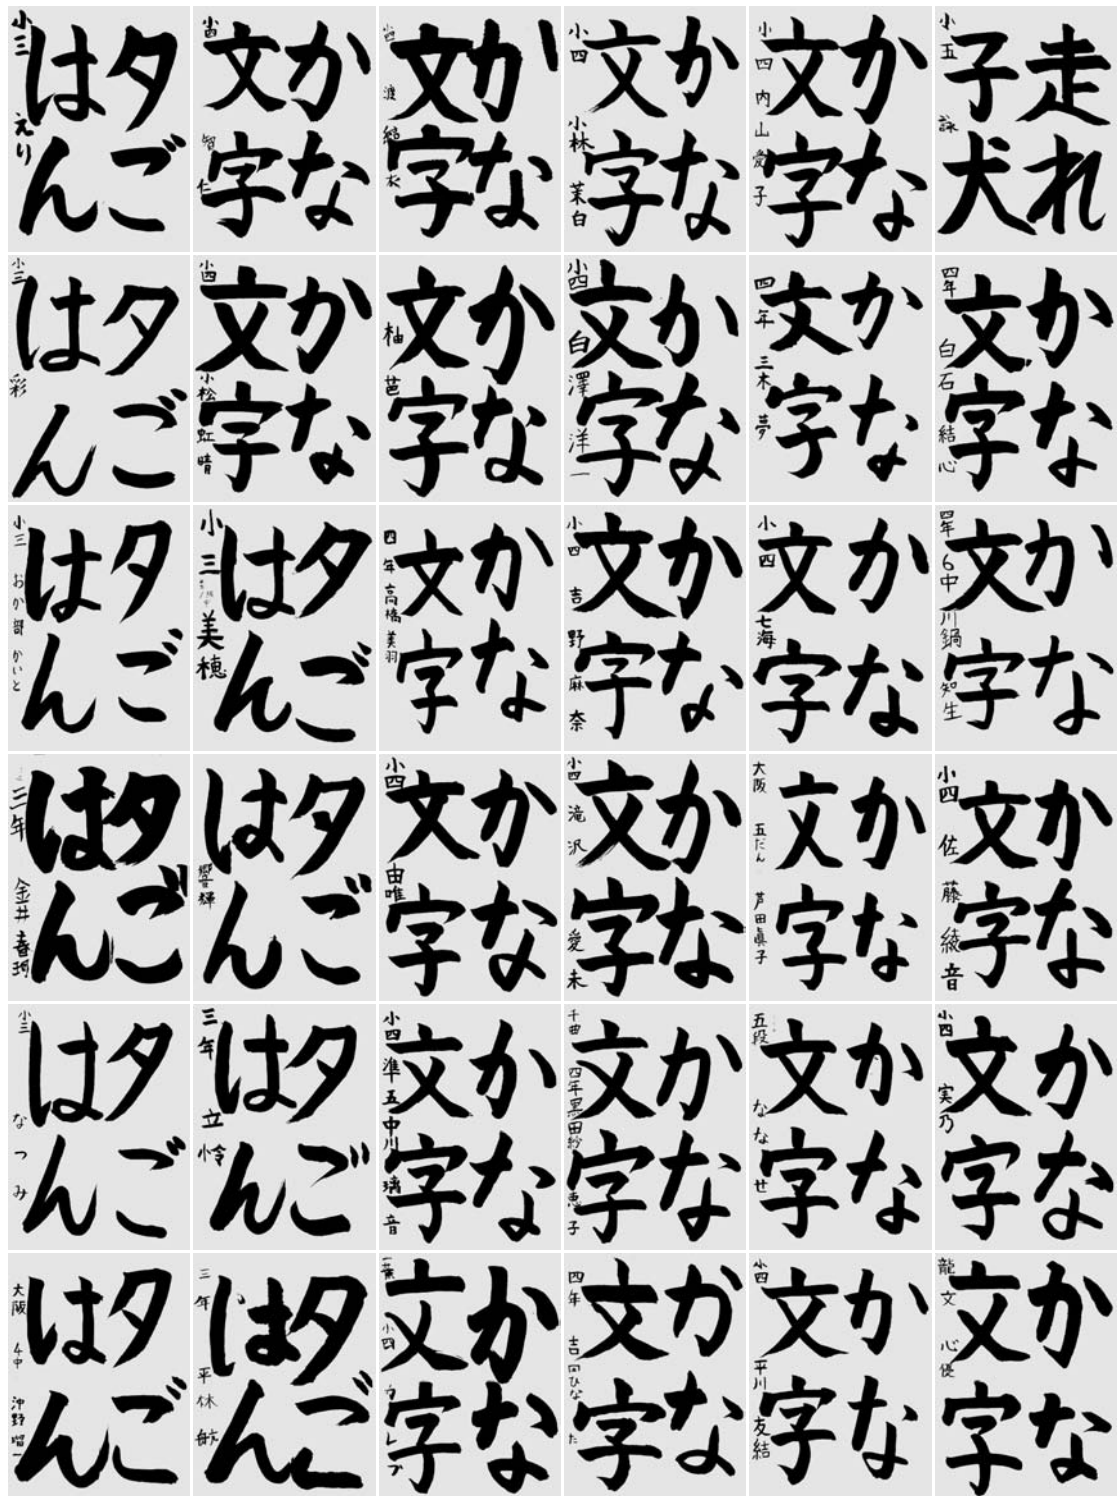 夕ごはん
小三 えり
かな文字
小四 智仁
かな文字
小四
かな文字
小四 小林 茉白
かな文字
小四 内山愛子
走れ子犬
小五 詠
夕ごはん
小三 彩
かな文字
小四 小松虹晴
かな文字
柚芭
かな文字
小四 白澤洋一
かな文字
四年 三木夢
かな文字
四年 白石結心
夕ごはん
小三 おか部かいと
夕ごはん
小三 美穂
かな文字
四年 高橋美羽
かな文字
小四 吉野麻奈
かな文字
小四 七海
かな文字
四年 6中 川鍋知生
夕ごはん
三年 金井春珂
夕ごはん
響輝
かな文字
小四 由唯
かな文字
小四 滝沢愛未
かな文字
大阪 五だん 芦田眞子
かな文字
小四 佐藤綾音
夕ごはん
小三 なつみ
夕ごはん
三年 立怜
かな文字
小四 準五 中川璃音
かな文字
千曲 四年 黒田紗恵子
かな文字
五段 ななせ
かな文字
小四 実乃
夕ごはん
大阪 4中 沖野
夕ごはん
三年 平林航
かな文字
小四
かな文字
四年 吉田ひなた
かな文字
小四 平川友結
かな文字
龍文 心優